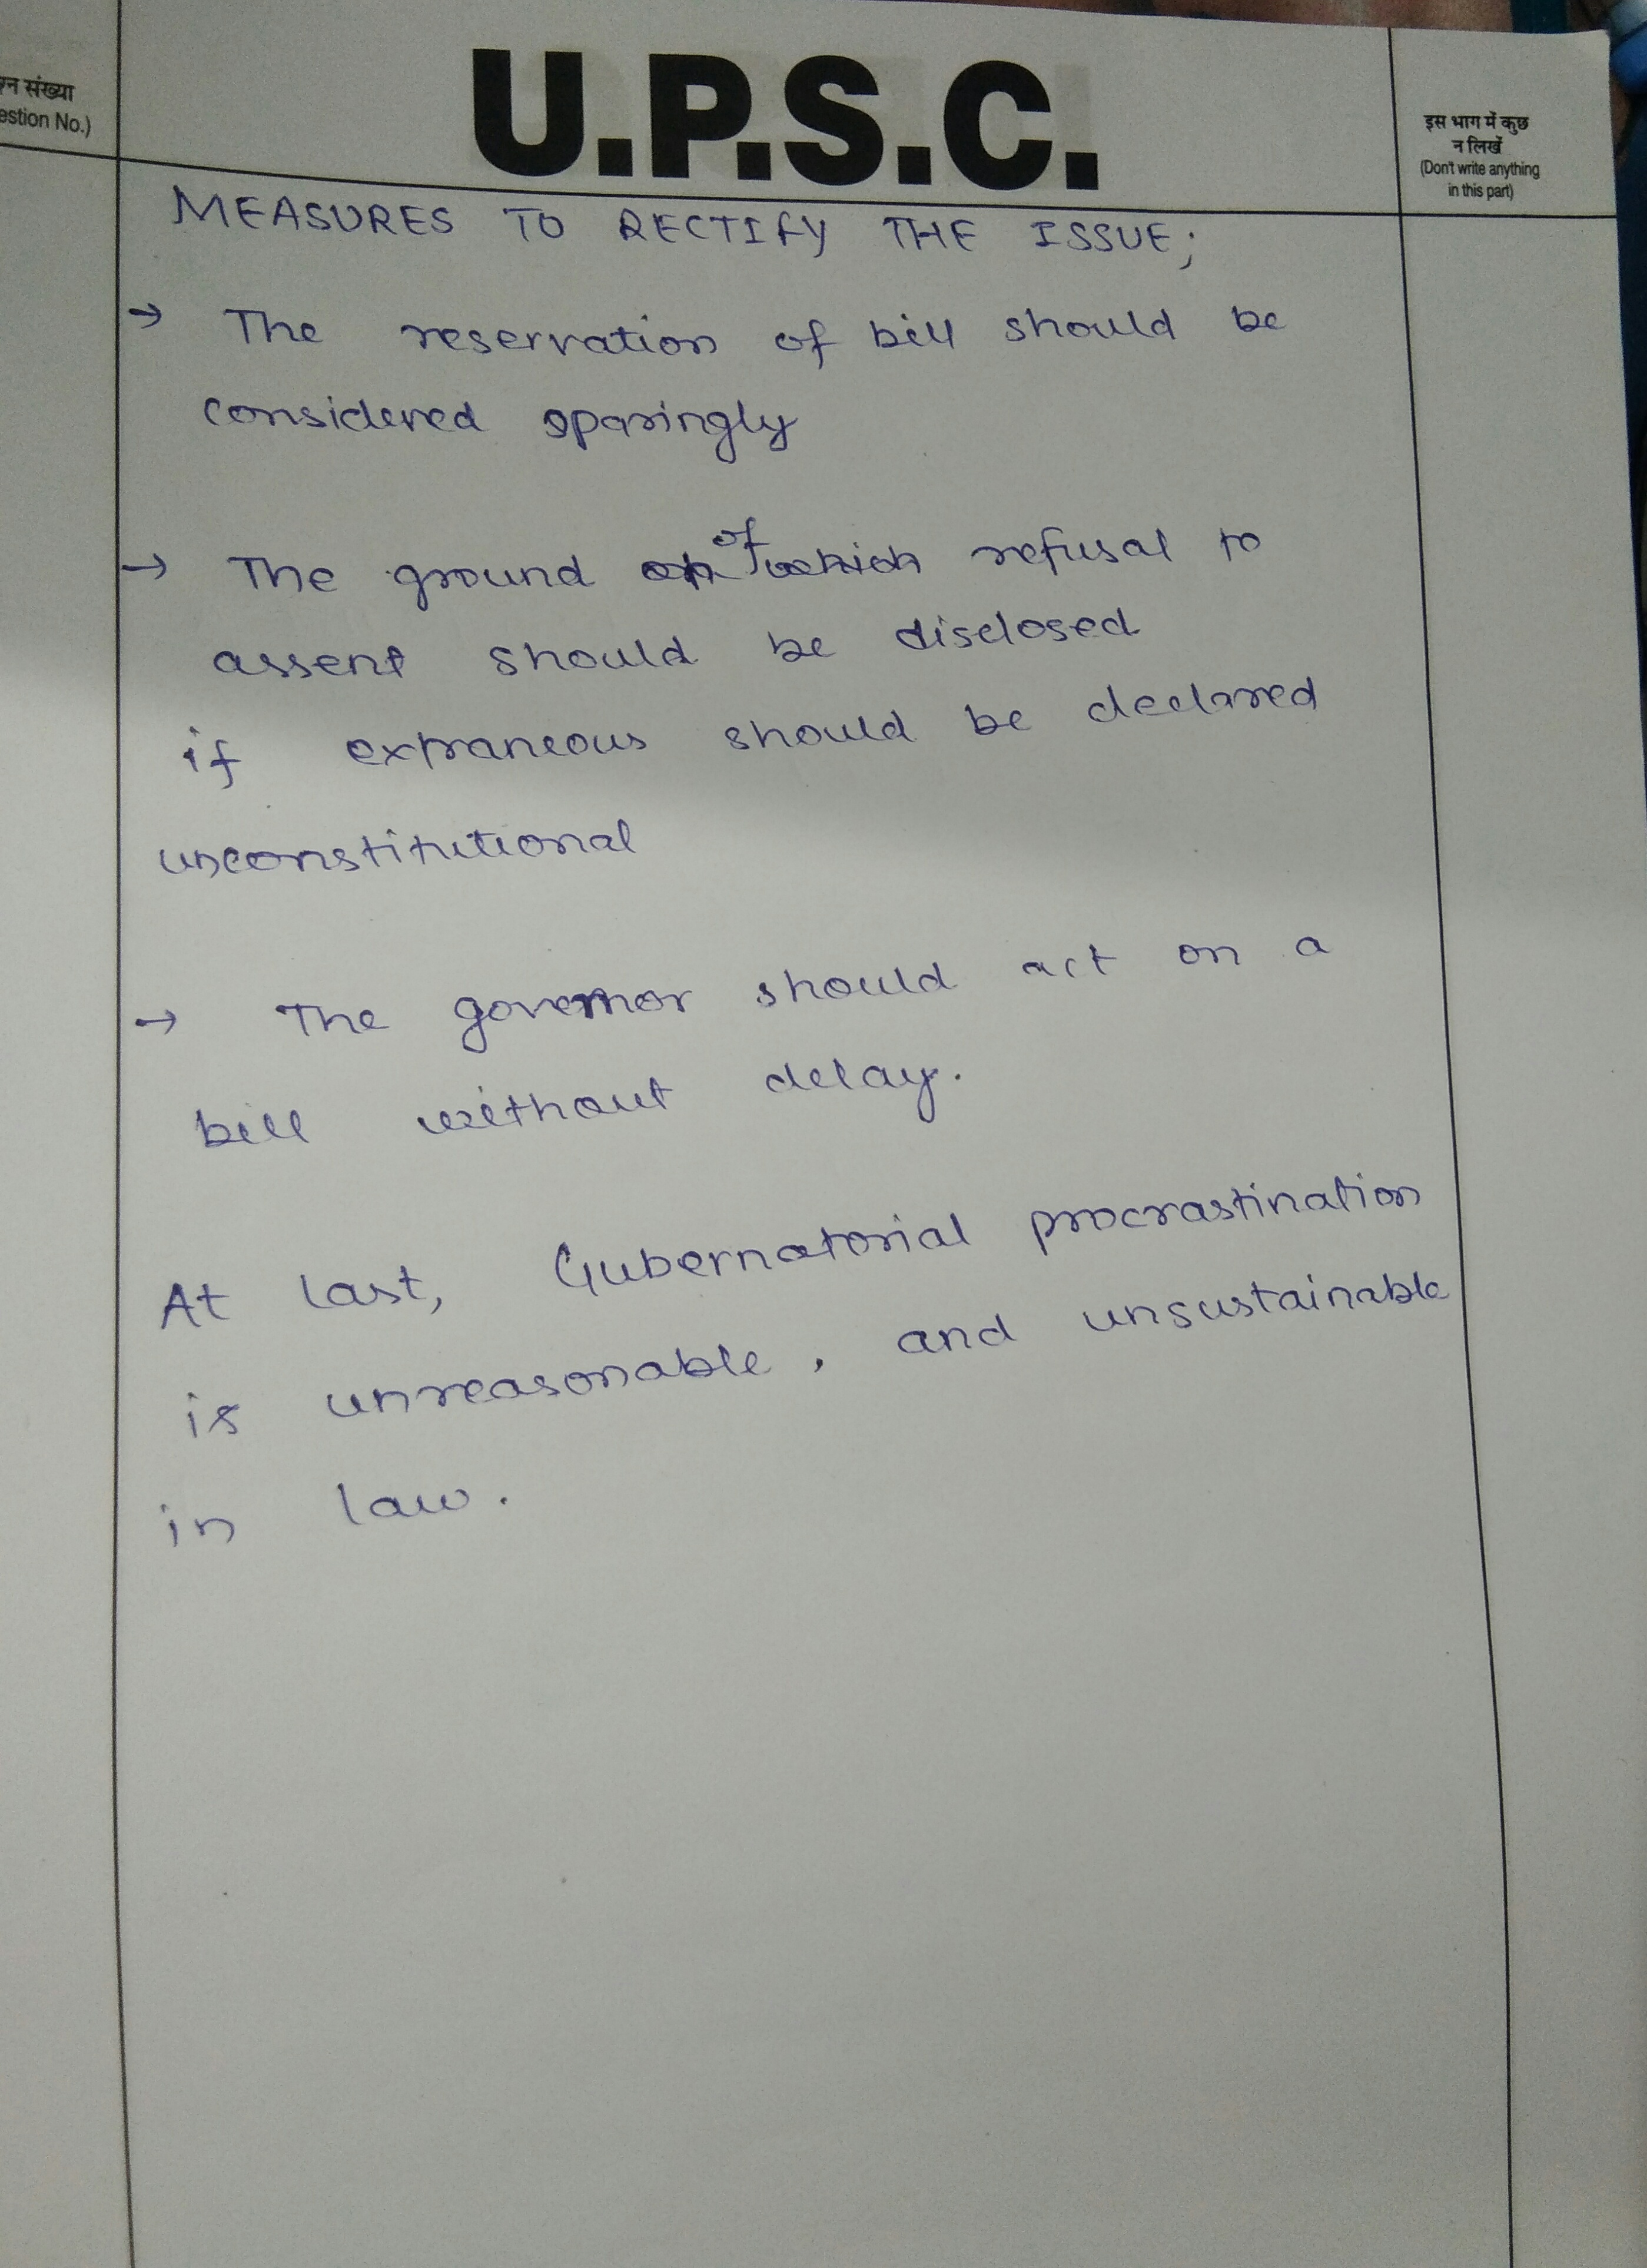 U.P.S.C.
न संख्या
estion No.)
इस भाग में कुछ
न लिखें
(Don't write anything
in this part)
MEASURES TO RECTIFY THE ISSUE;
→ The reservation of bill should be
considered sparingly
→ The ground of refusal to
assent should be disclosed
if extraneous should be declared
unconstitutional
→ The governor should act on a
bill without delay.
At last, Gubernatorial procrastination
is unreasonable, and unsustainable
in law.